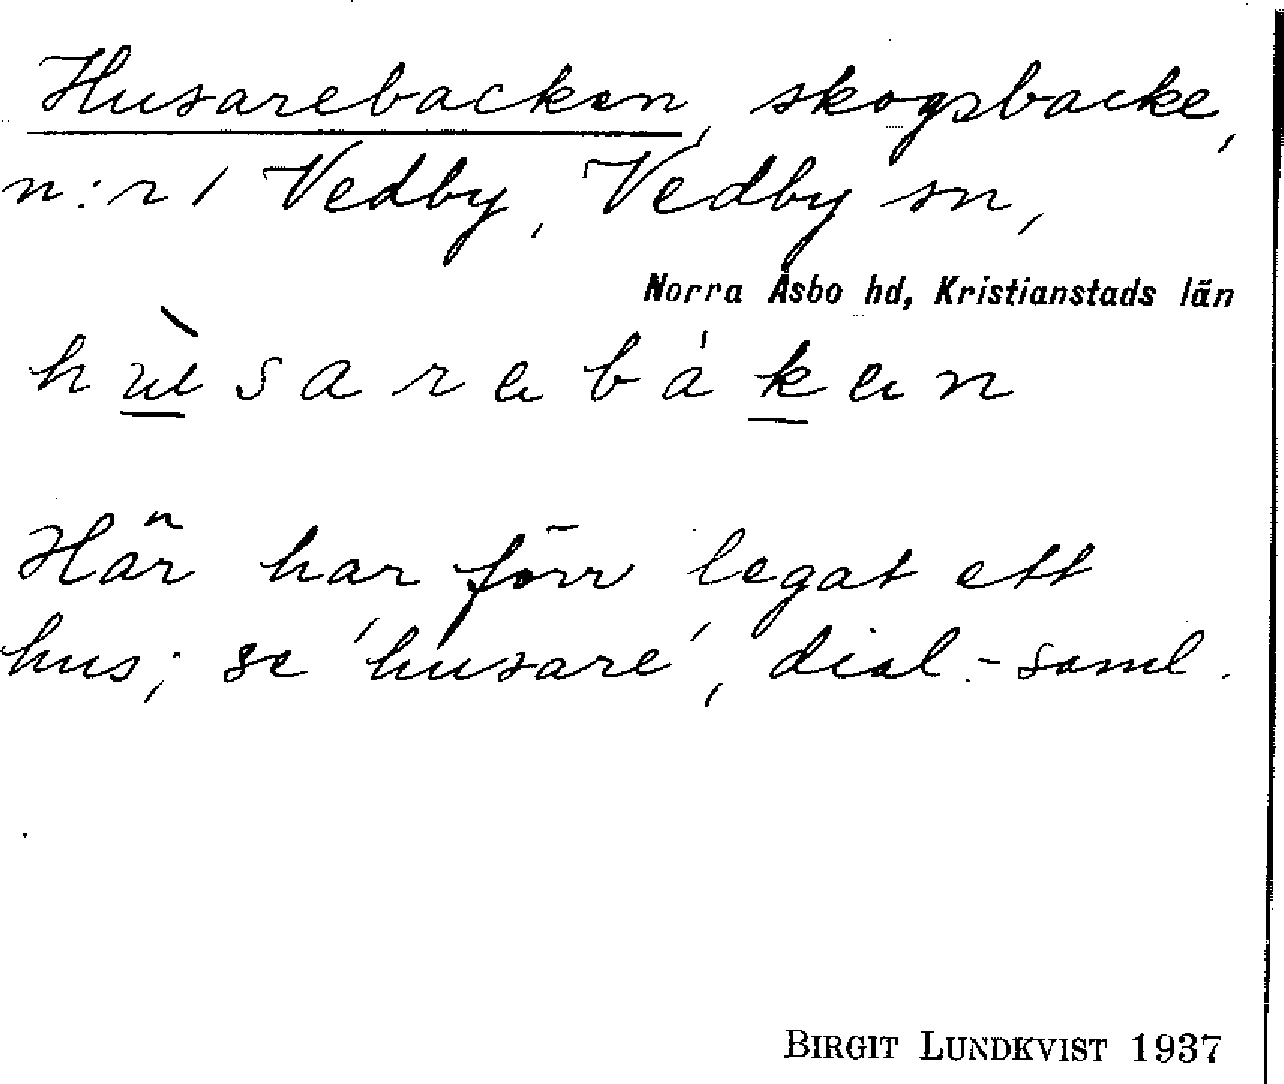 Husarebacken, skogsbacke,
n:r 1 Vedby, Vedby sn,
Norra Åsbo hd, Kristianstads län
Här har förr legat ett
hus; se 'husare', dial.-saml.
BIRGIT LUNDKVIST 1937